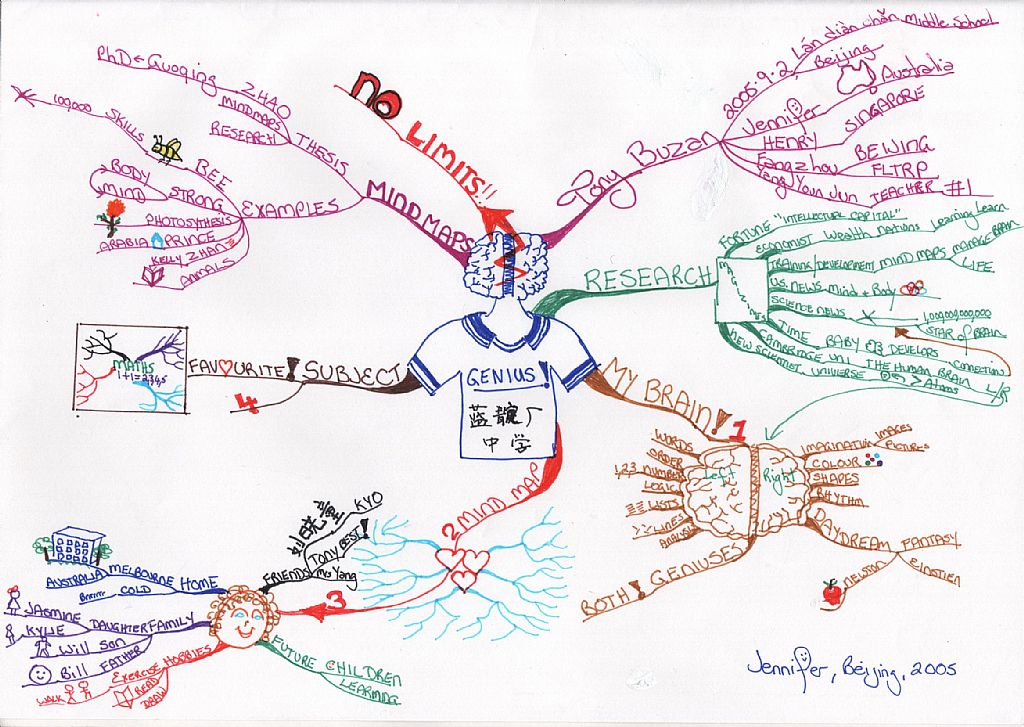 NO LIMITS!!
MIND MAPS
THESIS
ZHAO
Guoqing
PhD
MINDMAPS
RESEARCH
EXAMPLES
BEE
SKILLS
100,000
STRONG
BODY
MIND
PHOTOSYTHESIS
ARABIA PRINCE
KELLY ZHANG
ANIMALS
Tony Buzan
2005·9·2 Lán diàn chǎn Middle School
Beijing
Jennifer Australia
HENRY SINGAPORE
Fangzhou BEIJING
FLTRP
Yang Youn Jun TEACHER #1
RESEARCH
MAGAZINES
FORTUNE "INTELLECTUAL CAPITAL"
ECONOMIST Wealth Nations Learning Learn
TRAINING/DEVELOPMENT MIND MAPS MANAGE BRAIN
LIFE
U.S. NEWS Mind + Body
SCIENCE NEWS 1,000,000,000,000
STAR OF BRAIN
TIME BABY DEVELOPS CONNECTION
CAMBRIDGE UNI THE HUMAN BRAIN L/R
NEW SCIENTIST UNIVERSE > Atoms
GENIUS!
蓝靛厂
中学
SUBJECT
FAVOURITE!
4
MATHS
MY BRAIN!
1
Left
Right
WORDS
ORDER
1,2,3 NUMBER
LOGIC
LISTS
LINES
ANALYSIS
IMAGINATION IMAGES
PICTURES
COLOUR
SHAPES
RHYTHM
DAYDREAM FANTASY
EINSTIEN
NEWTON
BOTH! GENIUSES
2 MIND MAP
3
FRIENDS
KYO
TONY BEST!
Ms Yang
HOME
MELBOURNE
AUSTRALIA
COLD
FAMILY
DAUGHTER
JASMINE
KYLIE
Will SON
Bill FATHER
HOBBIES
EXERCISE
WALK
READ
DRAW
FUTURE CHILDREN
LEARNING
Jennifer, Beijing, 2005